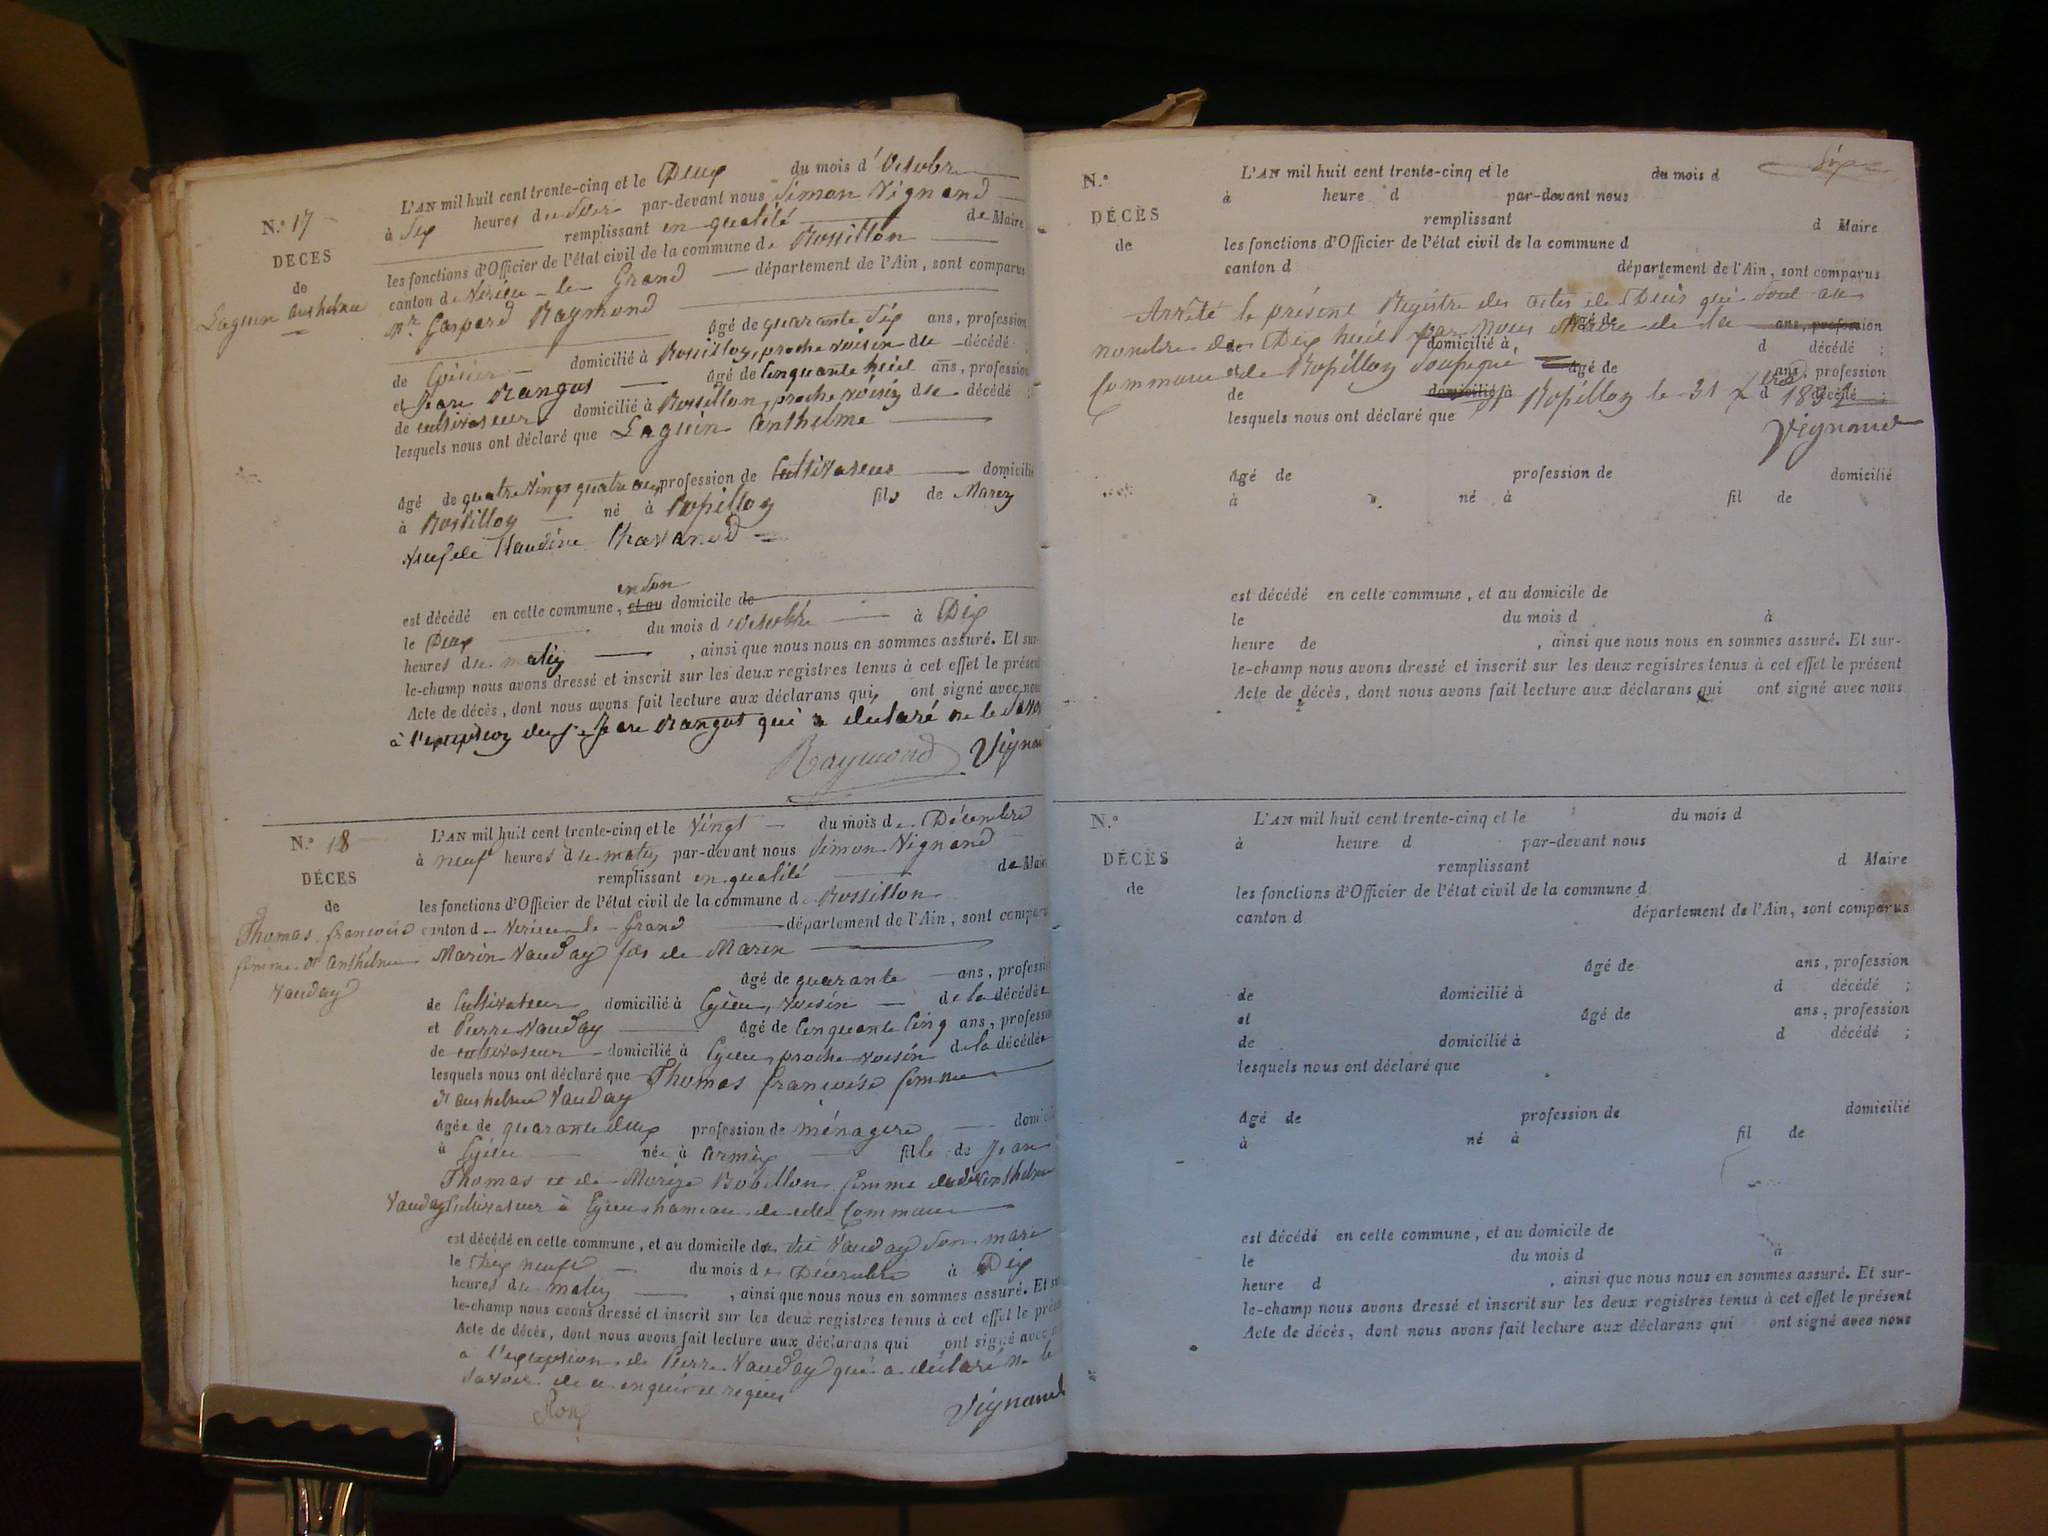 N.º 17
DECES
de
Laguin anthelme
L'AN mil huit cent trente-cinq et le Deux du mois d'Octobre
à Six heures du Soir par-devant nous Simon Vignand
remplissant en qualité de Maire
les fonctions d'Officier de l'état civil de la commune de Rossillon
canton de Virieu-le-Grand département de l'Ain, sont comparus
Mr Gaspard Raymond
âgé de quarante Six ans, profession
de domicilié à Rossillon, proche voisin du décédé ;
et Jean Mangot âgé de Cinquante huit ans, profession
de cultivateur domicilié à Rossillon, proche voisin du décédé ;
lesquels nous ont déclaré que Laguin Anthelme
âgé de quatre Vingt quatre ans profession de Cultivateur domicilié
à Rossillon né à Rossillon fils de
Veuf de Claudine
est décédé en cette commune, et au en Son domicile de
le Deux du mois d'Octobre à Dix
heures du matin , ainsi que nous nous en sommes assuré. Et sur-
le-champ nous avons dressé et inscrit sur les deux registres tenus à cet effet le présent
Acte de décès, dont nous avons fait lecture aux déclarans qui ont signé avec nous
à l'exception du Sr Jean Mangot qui a déclaré ne le Savoir
Raymond Vignand
N.º 18
DÉCES
de
Thomas françoise
femme d'anthelme
Vauday
L'AN mil huit cent trente-cinq et le Vingt du mois de Décembre
à neuf heures du matin par-devant nous Simon Vignand
remplissant en qualité de Maire
les fonctions d'Officier de l'état civil de la commune de Rossillon
canton de Virieu-le-Grand département de l'Ain, sont comparus
Marin Vauday fils de Marin
âgé de quarante ans, profession
de Cultivateur domicilié à Eyieu, voisin de la décédée
et Pierre Vauday âgé de Cinquante Cinq ans, profession
de cultivateur domicilié à Eyieu, proche voisin de la décédée
lesquels nous ont déclaré que Thomas françoise femme
d'anthelme Vauday
âgée de quarante deux profession de ménagère domicilié
à Eyieu née à Armix fille de Jean
Thomas et de Bobillon femme dudit Anthelme
Vauday Cultivateur à Eyieu hameau de cette Commune
est décédé en cette commune, et au domicile du dit Vauday Son mari
le Dix neuf du mois de Décembre à Dix
heures du matin , ainsi que nous nous en sommes assuré. Et sur-
le-champ nous avons dressé et inscrit sur les deux registres tenus à cet effet le présent
Acte de décès, dont nous avons fait lecture aux déclarans qui ont signé avec nous
à l'exception de Pierre Vauday qui a déclaré ne le
Savoir de ce enquis et requis
Vignand
N.º
DÉCÈS
de
L'AN mil huit cent trente-cinq et le du mois d
à heure d par-devant nous
remplissant d Maire
les fonctions d'Officier de l'état civil de la commune d
canton d département de l'Ain, sont comparus
Arrêté le présent Registre des actes de Décès qui Sont au
âgé de ans, profession
nombre de Dix huit par Nous Maire de la
de domicilié à d décédé ;
Commune de Rossillon Soussigné
et âgé de ans, profession
de domicilié à d décédé ;
Rossillon le 31
lesquels nous ont déclaré que
Vignand
âgé de profession de domicilié
à né à fil de
est décédé en cette commune, et au domicile de
le du mois d à
heure de , ainsi que nous nous en sommes assuré. Et sur-
le-champ nous avons dressé et inscrit sur les deux registres tenus à cet effet le présent
Acte de décès, dont nous avons fait lecture aux déclarans qui ont signé avec nous
N.º
DÉCÈS
de
L'AN mil huit cent trente-cinq et le du mois d
à heure d par-devant nous
remplissant d Maire
les fonctions d'Officier de l'état civil de la commune d
canton d département de l'Ain, sont comparus
âgé de ans, profession
de domicilié à d décédé ;
et âgé de ans, profession
de domicilié à d décédé ;
lesquels nous ont déclaré que
âgé de profession de domicilié
à né à fil de
est décédé en cette commune, et au domicile de
le du mois d à
heure d , ainsi que nous nous en sommes assuré. Et sur-
le-champ nous avons dressé et inscrit sur les deux registres tenus à cet effet le présent
Acte de décès, dont nous avons fait lecture aux déclarans qui ont signé avec nous